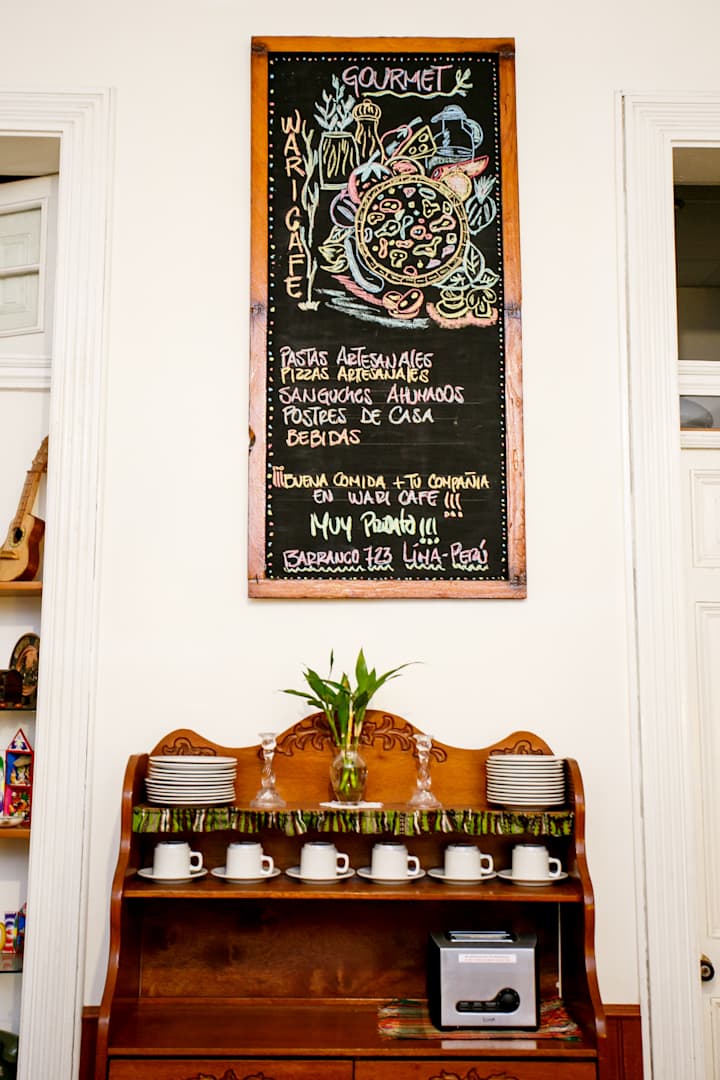 GOURMET
WARI CAFE
PASTAS ARTESANALES
PIZZAS ARTESANALES
SANGUCHES AHUMADOS
POSTRES DE CASA
BEBIDAS
¡¡¡BUENA COMIDA + TU COMPAÑIA
EN WARI CAFE !!!
MUY PRONTO!!!
BARRANCO 723 LIMA - PERÚ